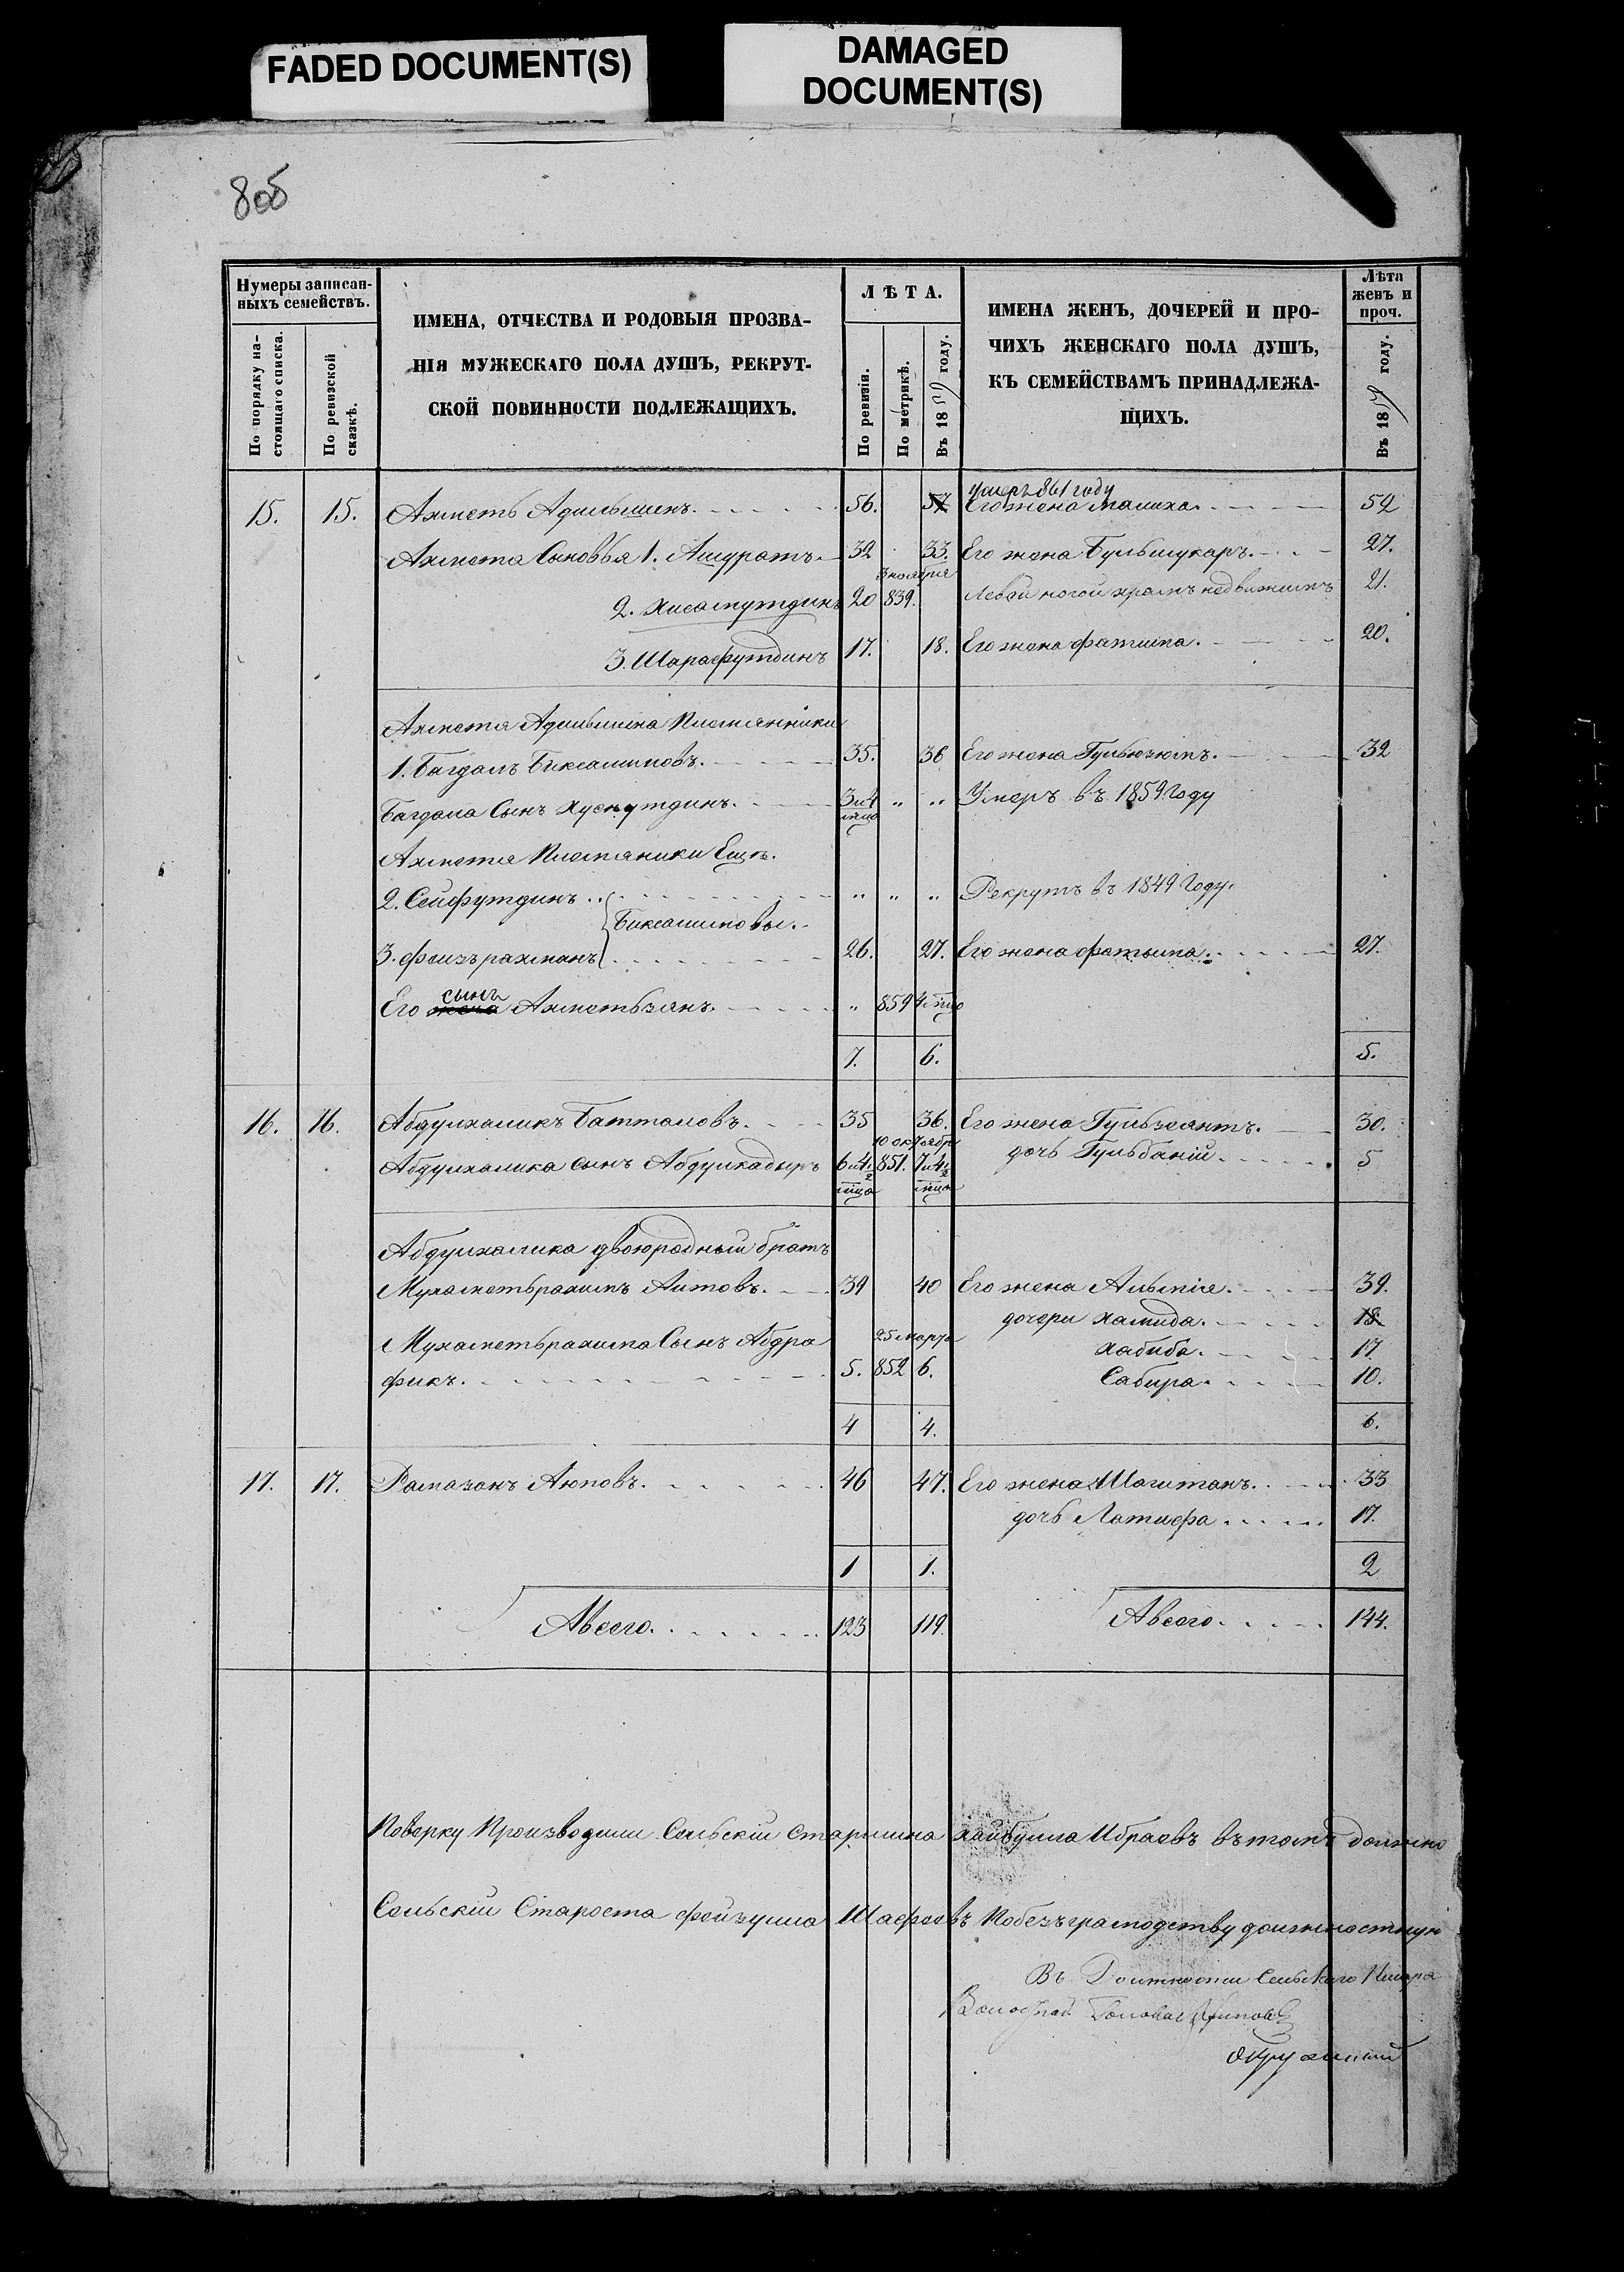 FADED DOCUMENT(S)
DAMAGED
DOCUMENT(S)
80б
Нумеры записан-
ныхъ семействъ.
По порядку на-
стоящаго списка.
По ревизской
сказкѣ.
ИМЕНА, ОТЧЕСТВА И РОДОВЫЯ ПРОЗВА-
НІЯ МУЖЕСКАГО ПОЛА ДУШЪ, РЕКРУТ-
СКОЙ ПОВИННОСТИ ПОДЛЕЖАЩИХЪ.
ЛѢТА.
По ревизіи.
По метрикѣ.
Въ 1859 году.
ИМЕНА ЖЕНЪ, ДОЧЕРЕЙ И ПРО-
ЧИХЪ ЖЕНСКАГО ПОЛА ДУШЪ,
КЪ СЕМЕЙСТВАМЪ ПРИНАДЛЕЖА-
ЩИХЪ.
Лѣта
женъ и
проч.
Въ 1859 году.
умеръ 861 году
15. 15. Ахметь Адильшинъ. 56. 57 Его жена Малиха. 52
Ахметя Сыновья 1. Ашуратъ. 32 33. Его жена Бульшукаръ. 27.
3 ноября
2. Хисамутдинъ 20 839. Левой ногой храмъ недвижимъ 21.
3. Шарафутдинъ 17. 18. Его жена фатима. 20.
Ахметя Адильшина Племянники
1. Багдалъ Биксашиновъ. 35. 36 Его жена Гульюзюмъ. 32
Багдала Сынъ Хуснутдинъ. 3и4 мца " " Умеръ въ 1859 Году
Ахметя Племяники Еще.
2. Сейфутдинъ .. " " " Рекрутъ въ 1849 Году.
Биксашиновы.
3. феизърахманъ 26. 27. Его жена фатыма. 27.
сынъ
Его жена Ахметьзянъ. " 859 4 мца
7. 6. 5.
16. 16. Абдулхаликъ Батталовъ. 35 36. Его жена Гульзсянтъ. 30.
10 октября
Абдулхалика сынъ Абдулкадыръ 6и4½ мца 851. 7и4½ мца дочь Гульбаніи. 5
Абдулхалика двоюродный братъ
Мухаметьрахимъ Аитовъ. 39 40 Его жена Альміе. 39.
дочери Хамида. 18
Мухаметьрахима Сынъ Абдра 25 марта Хабиба. 17
фикъ. 5. 852 6. Сабира. 10.
4 4. 6.
17. 17. Рамазанъ Аюповъ. 46 47. Его жена Шагитанъ. 33
дочь Латифа. 17.
1 1. 2
А всего. 123 119. А всего. 144.
Поверку Производили Сельскіи Старшина Хайбулла Ибраевъ въ томъ должно
Сельскіи Староста фейзулла Шафеевъ Побезъграмодетву должностную
Въ Должности Сельскаго Писара
Голова
Окружный